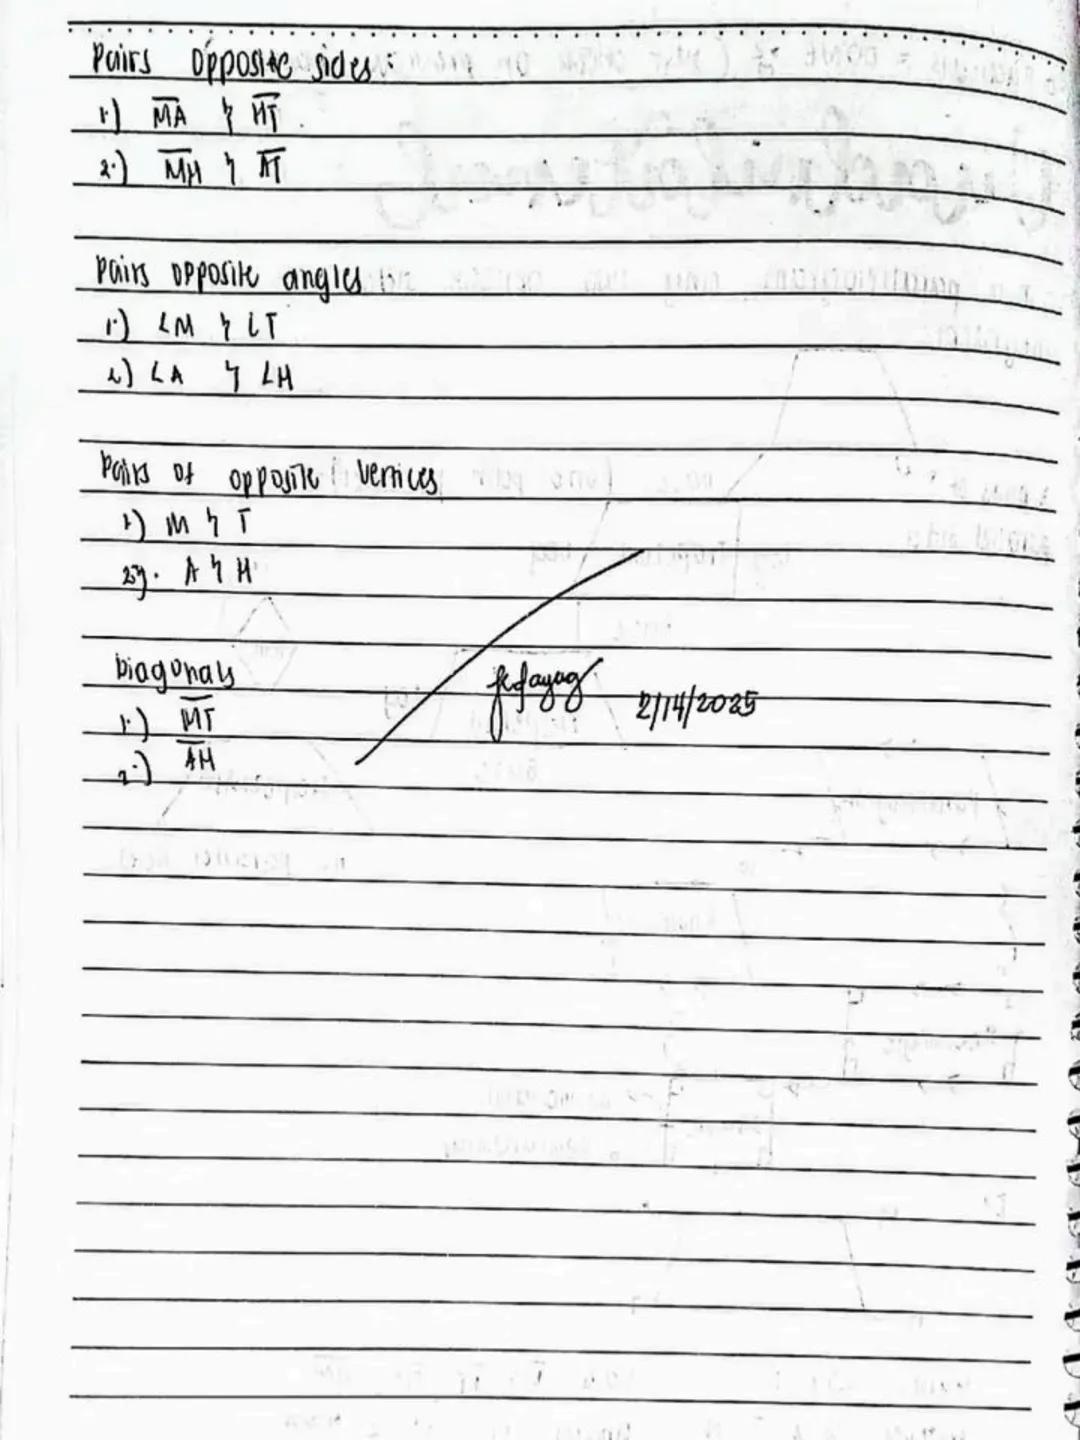 Pairs opposite sides:
1.) MA & HT
2.) MH & AT
Pairs opposite angles
1.) ∠M & ∠T
2) ∠A & ∠H
Pairs of opposite vertices
1) M & T
2). A & H
Diagonals
1.) MT
2.) AH
2/14/2025